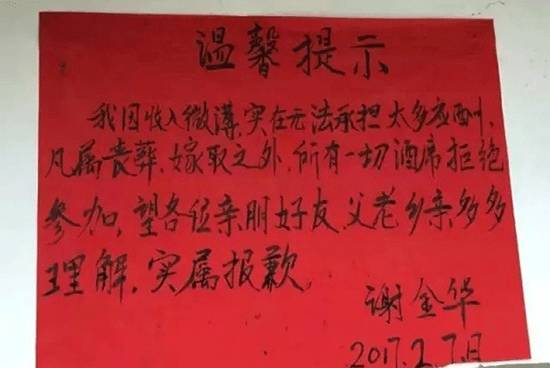 温馨提示
我因收入微薄,实在无法承担太多应酬、
凡属丧葬、嫁取之外,所有一切酒席拒绝
参加,望各位亲朋好友、父老乡亲多多
理解,实属报歉。
谢金华
2017.2.7日